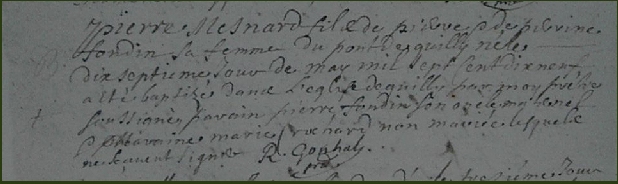 pierre Mesnard fils de pierre & de perrine
fondin sa femme du pont desquilly né le
dix septiesme Jour de may mil sept cent dix neuf
a esté baptizé dans l'eglise desquilly par moy prêtre
soussigné parain pierre fondin son oncle
& Maraine marie renard non mariée lesquels
ne scavent signer